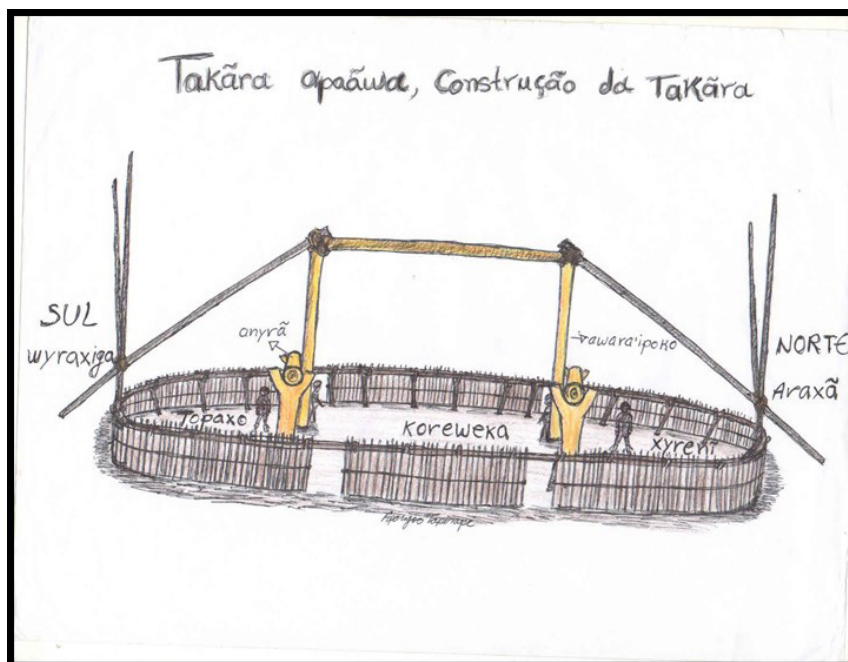 Takãra apaãwa, Construção da Takãra
SUL
wyraxiga
anyrã
awara'ipoko
NORTE
Araxã
Topaxo
Koreweka
xyrexi
Tapirape